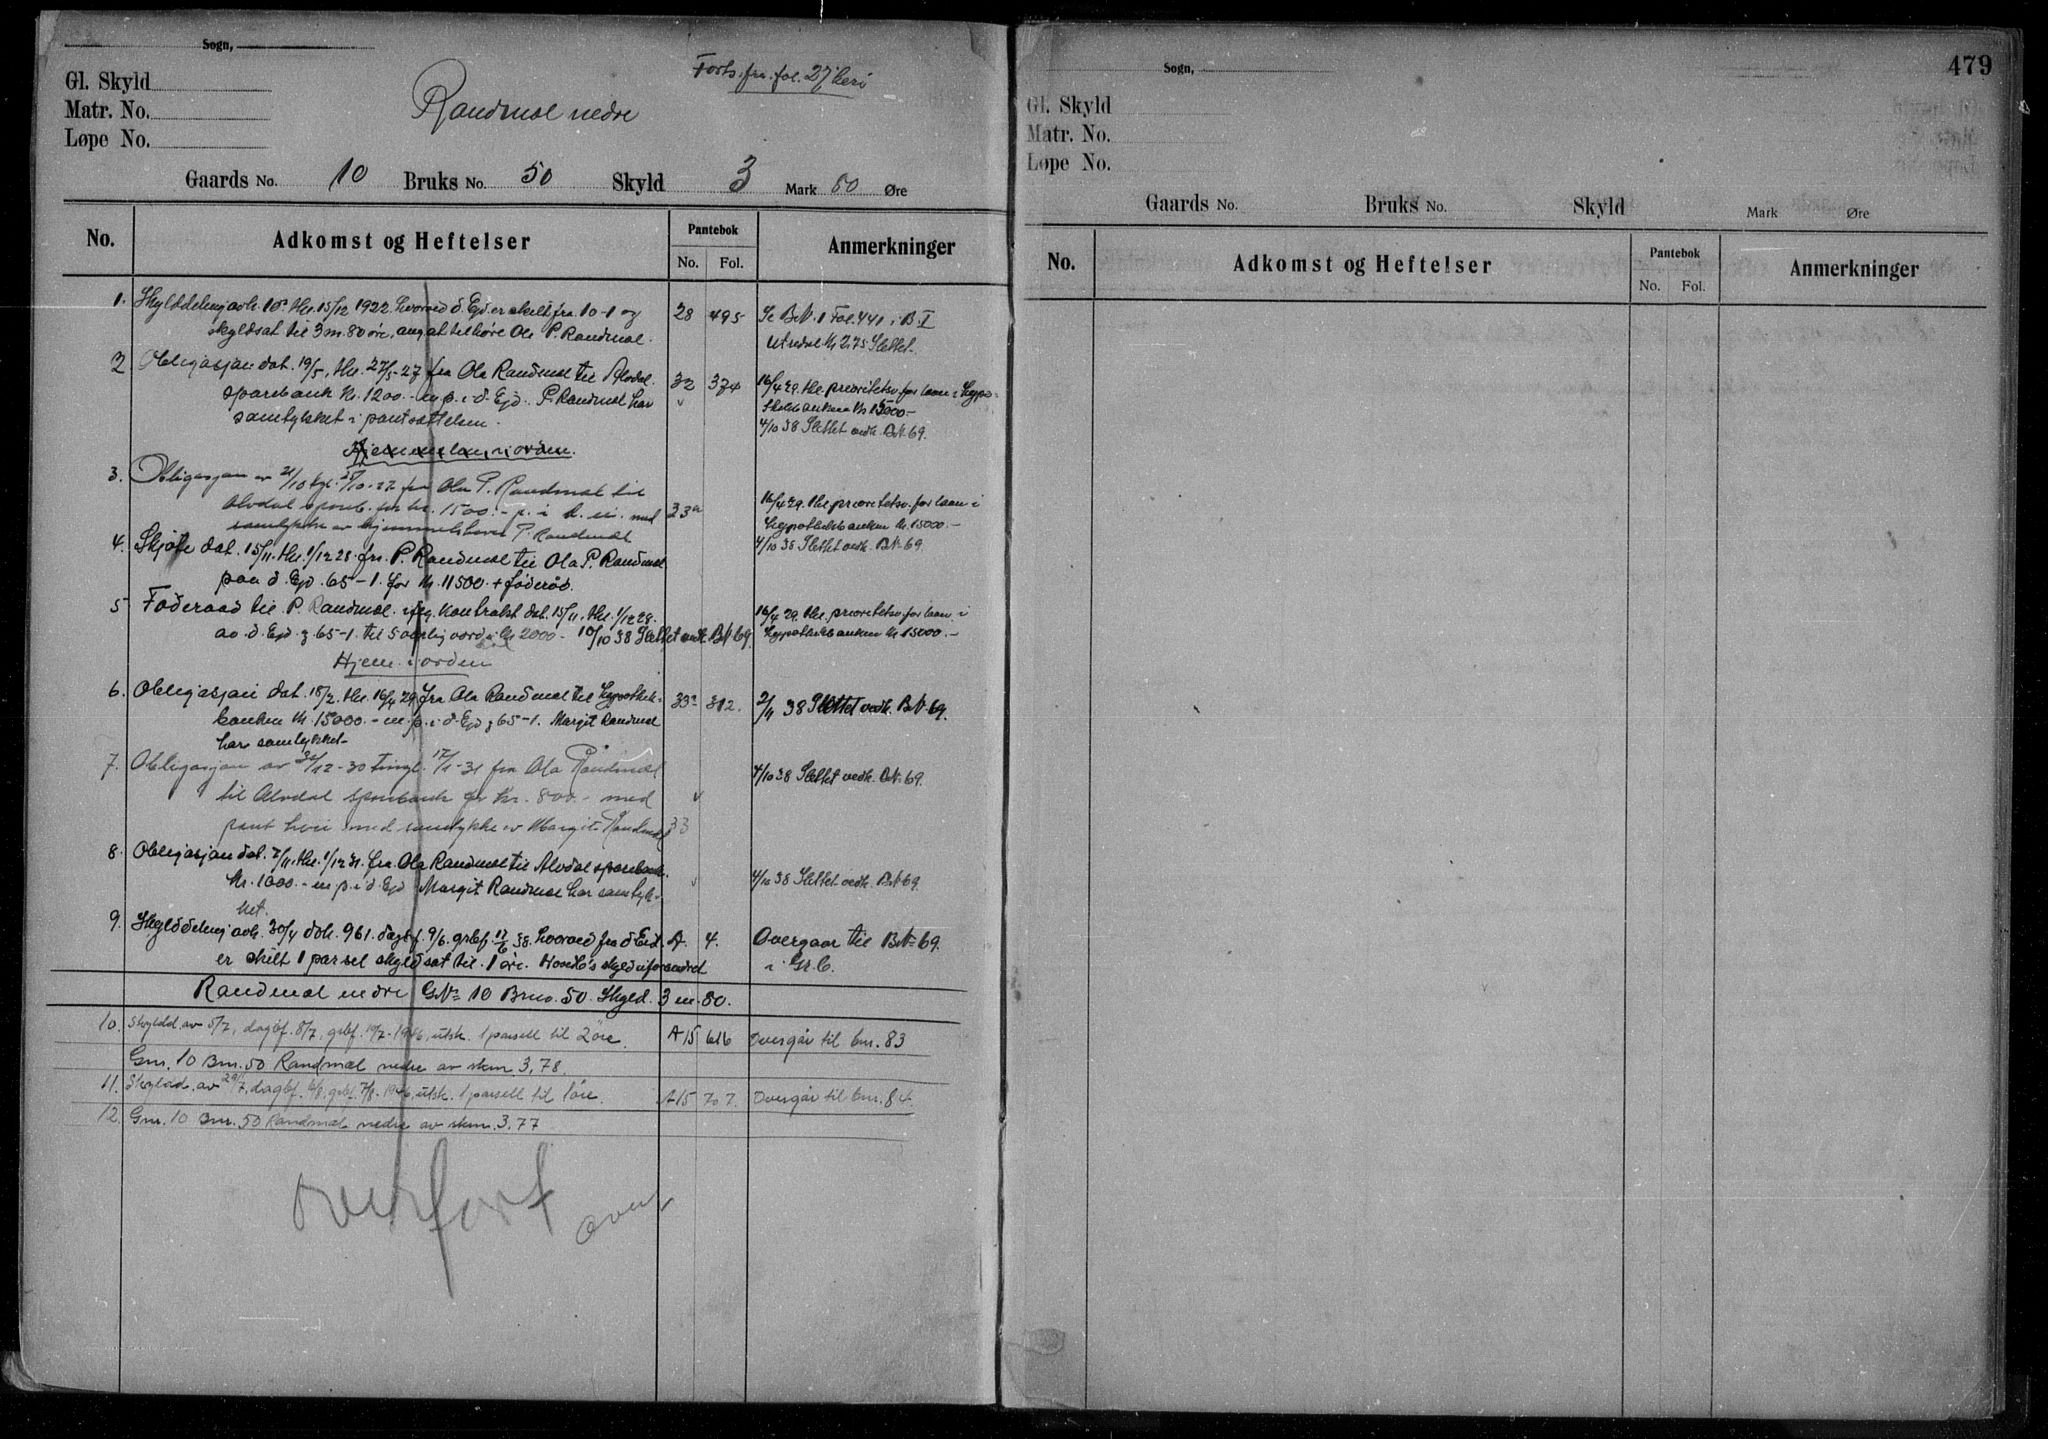 Sogn,
Forts. fra fol. 27 heri
Gl. Skyld
Matr. No.
Løpe No.
Randmæl nedre
Gaards No. 10 Bruks No. 50 Skyld 3 Mark 80 Øre
No. Adkomst og Heftelser Pantebok No. Fol. Anmerkninger
1. Skylddeling avh. thl. 15/12 1922 hvorved d. Ejd. er skilt fra 10-1 og 28 495 Se BN. 1 Fol. 441 i B. I
skyldsat til 3 m. 80 øre, ang. at tilhøre Ole P. Randmæl. Utredal Kr 2.75 Slettet.
2 Obligasjon dat. 19/5, thl. 27/5-27 fra Ola Randmæl til Alvdal
sparebank Kr. 1200.- m. p. i d. Ejd. P. Randmæl har 32 374 16/4 29. thl. prioritetsv. for laan i Hypo-
samtykket i pantsættelsen. thekbanken Kr 15000.-
4/10 38 Slettet vedk. BN. 69.
Hjemmelen i orden.
3. Obligasjon av 21/10 tgl. 25/10-27 fra Ola P. Randmæl til
Alvdal spareb. for kr. 1500.- p. i d. ei. med 33a 16/4 29. thl. prioritetsv. for laan i
samtykke av hjemmelshaver P. Randmæl Hypothekbanken Kr. 15000.-
4. Skjøte dat. 15/11. thl. 1/12 28. fra P. Randmæl til Ola P. Randmæl 4/10 38 Slettet vedk. BN. 69.
paa d. Ejd. 65-1. for Kr. 11500. + føderåd.
5 Føderaad til P. Randmæl. iføg. kontrakt dat. 15/11, thl. 1/12 28. 16/4 29. thl. prioritetsv. for laan i
av d. Ejd. & 65-1. til 5 aarlig værdi Kr 2000 - 10/10 38 Slettet vedk. BN. 69. Hypothekbanken Kr 15000.-
Hjem. i orden
6. Obligasjon dat. 18/2. thl. 16/4 29. fra Ola Randmæl til Hypothek- 33a 312. 2/11 38 Slettet vedk. BN. 69.
banken Kr. 15000.- m. p. i d. Ejd & 65-1. Margit Randmæl
har samtykket
7. Obligasjon av 31/12-30 tingl. 17/1-31 fra Ola Randmæl 4/10 38 Slettet vedk. BN. 69.
til Alvdal sparebank for Kr. 800.- med
pant heri med samtykke av Margit Randmæl 33
8. Obligasjon dat. 7/11. thl. 1/12 31. fra Ola Randmæl til Alvdal sparebank.
Kr. 1000.- m p. i d. Ejd Margit Randmæl har samtyk- 4/10 38 Slettet vedk. BN. 69.
ket.
9. Skylddeling avh. 30/4 dok. 961. dagbf. 9/6. grbf. 17/6 38. hvorved fra d Eid. A. 4. Overgaar til BN. 69.
er skilt 1 parsel skyldsat til. 1 øre. Hovedb's skyld uforandret i Gr. b.
Randmæl nedre GNo 10 Brno. 50. Skyld. 3 m. 80.
10. Skyldd. av 5/7, dagbf. 8/7, grbf. 19/7-1946, utsk. 1 parsell til 2 øre. A 15 616 Overgår til bnr. 83
Gnr. 10 Bnr. 50 Randmæl nedre av skm. 3,78.
11. Skyldd. av 29/7, dagbf. 6/8, grbf. 7/8-1946, utsk. 1 parsell til 1 øre. A 15 707. Overgår til bnr. 84.
12. Gnr. 10 Bnr. 50 Randmæl nedre av skm. 3,77
overført
over
479
Sogn,
Gl. Skyld
Matr. No.
Løpe No.
Gaards No. Bruks No. Skyld Mark Øre
No. Adkomst og Heftelser Pantebok No. Fol. Anmerkninger